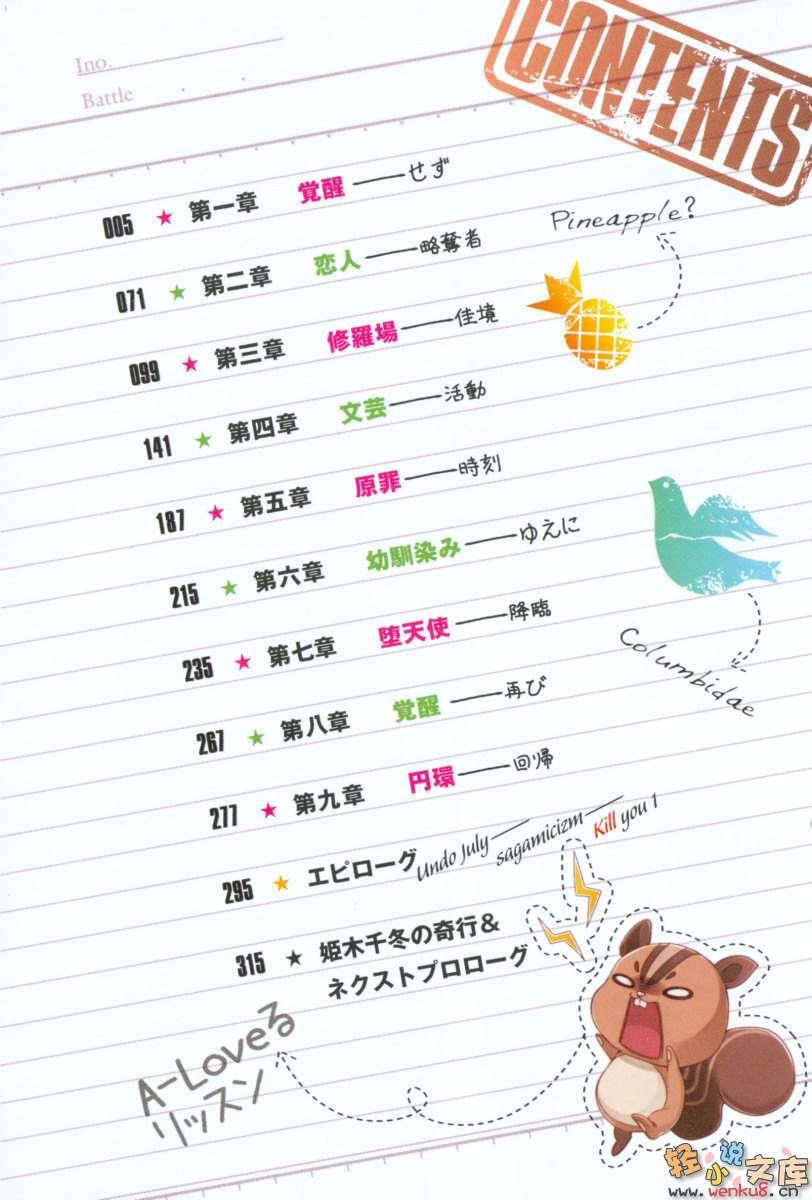 Ino.
Battle
CONTENTS
005 ★ 第一章 覚醒――せず
Pineapple?
071 ★ 第二章 恋人――略奪者
099 ★ 第三章 修羅場――佳境
141 ★ 第四章 文芸――活動
187 ★ 第五章 原罪――時刻
215 ★ 第六章 幼馴染み――ゆえに
235 ★ 第七章 堕天使――降臨
Columbidae
267 ★ 第八章 覚醒――再び
277 ★ 第九章 円環――回帰
295 ★ エピローグ Undo July―sagamicizm―Kill you 1
315 ★ 姫木千冬の奇行＆
ネクストプロローグ
A-Loveる
リッスン
轻小说文库
www.wenku8.cn